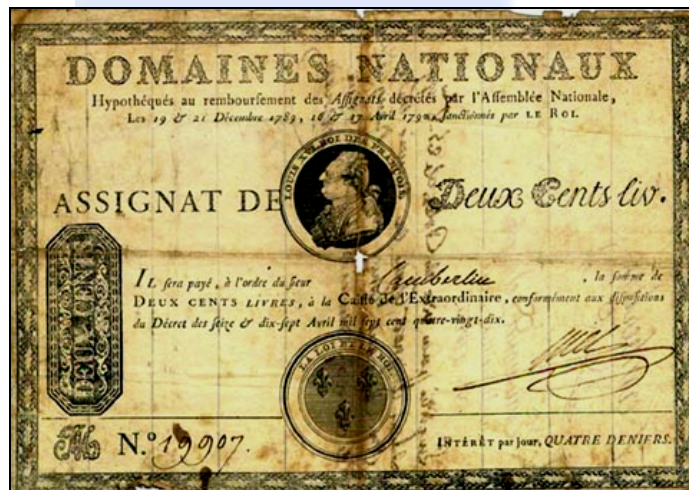 DOMAINES NATIONAUX
Hypothéqués au remboursement des Assignats décrétés par l'Assemblée Nationale,
Les 19 & 21 Décembre 1789, 16 & 17 Avril 1790, sanctionnés par LE ROI.
LOUIS XVI ROI DES FRANÇOIS
ASSIGNAT DE Deux Cents liv.
DEUX CENTS
IL sera payé, à l'ordre du sieur , la somme de
DEUX CENTS LIVRES, à la Caisse de l'Extraordinaire, conformément aux dispositions
du Décret des seize & dix-sept Avril mil sept cent quatre-vingt-dix.
LA LOI ET LE ROI
N.º 19907.
INTÉRÊT par jour, QUATRE DENIERS.